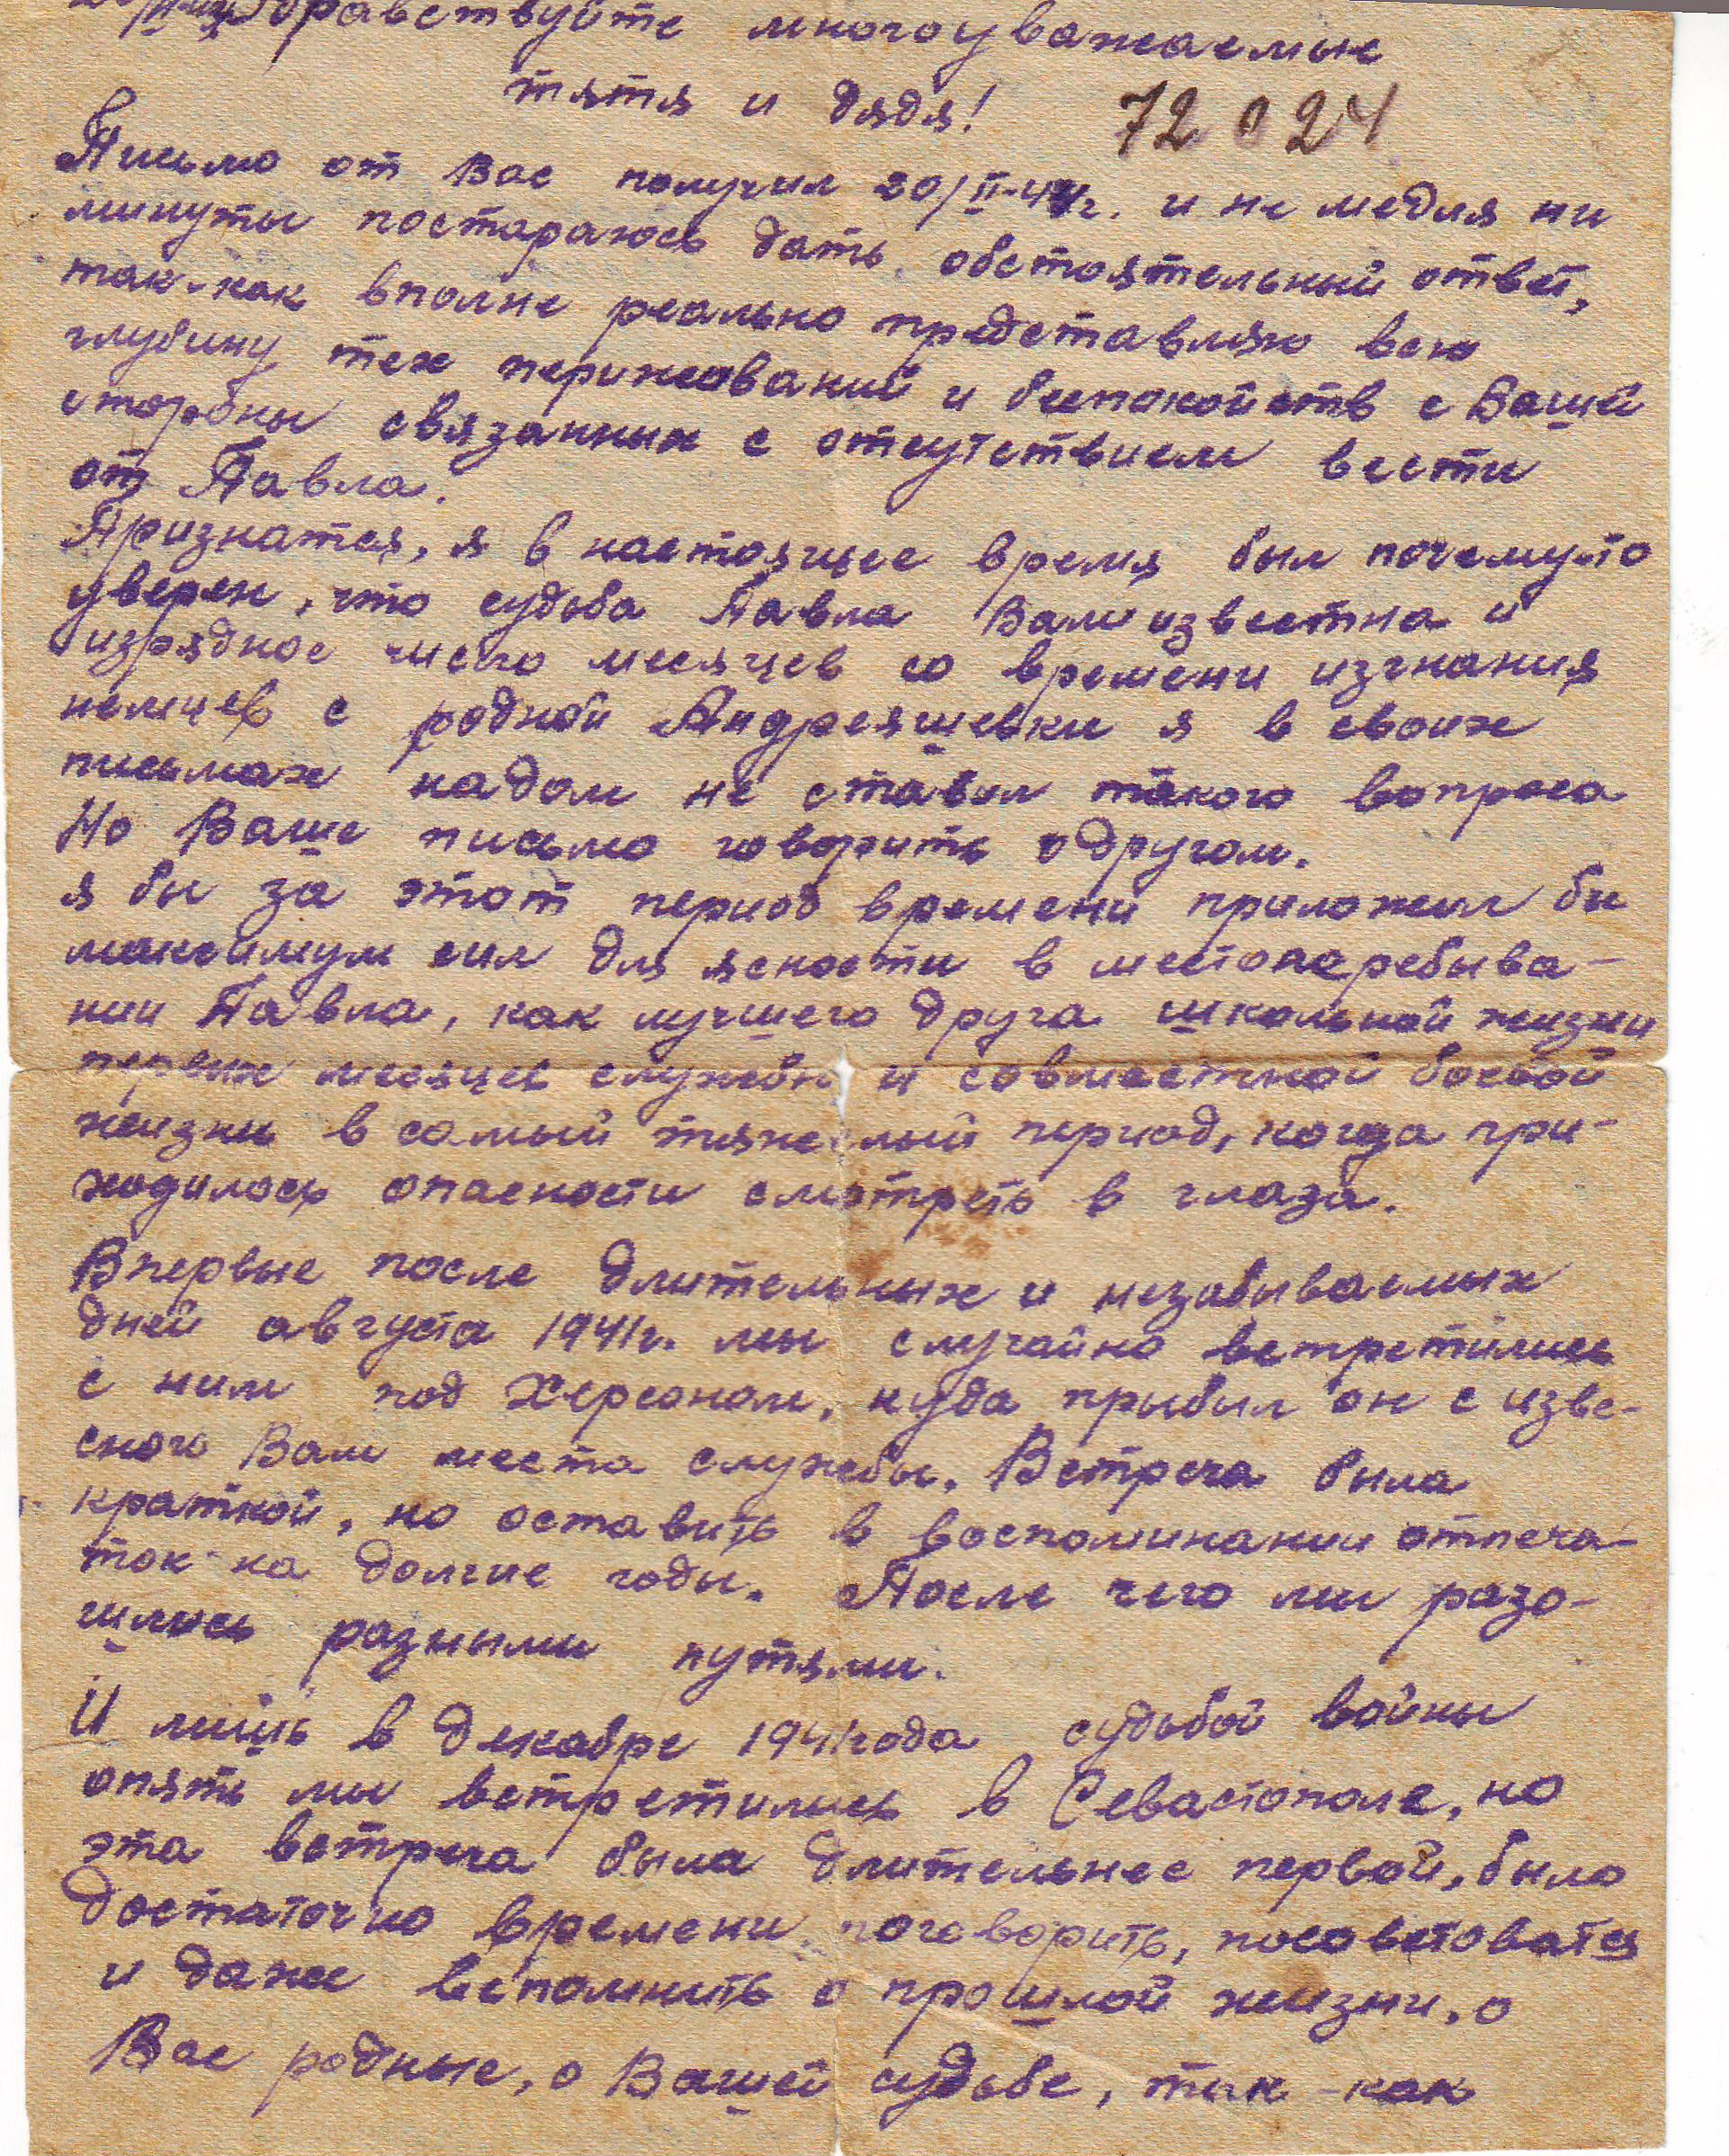 Здравствуйте многоуважаемые
тятя и дядя! 72024
Письмо от Вас получил 20/II-44г. и не медля ни
минуты постараюсь дать обстоятельный ответ,
так-как вполне реально представляю всю
глубину тех переживаний и беспокойств с Вашей
стороны связанных с отсутствием вести
от Павла.
Признатся, я в настоящее время был почему-то
уверен, что судьба Павла Вам известна и
изрядное число месяцев со времени изгнания
немцев с родной Андреяшевки я в своих
письмах надом не ставил такого вопроса
Но Ваше письмо говорить о другом.
я бы за этот период времени приложил бы
максимум сил для ясности в местопребыва-
нии Павла, как лучшего друга школьной жизни
первых месяцев службы и совместной боевой
жизни в самый тяжелый период, когда при-
ходилось опасности смотреть в глаза.
Впервые после длительных и незабываемых
дней августа 1941г. мы случайно встретились
с ним под Херсоном, куда прибыл он с изве-
сного Вам места службы. Встреча была
краткой, но оставить в воспоминании отпеча-
ток на долгие годы. После чего мы разо-
шлись разными путями.
И лишь в декабре 1941года судьбой войны
опять мы встретились в Севастополе, но
эта встреча была длительнее первой, было
достаточно времени поговорить, посоветоватся
и даже вспомнить о прошлой жизни, о
Вас родные, о Вашей судьбе, так-как